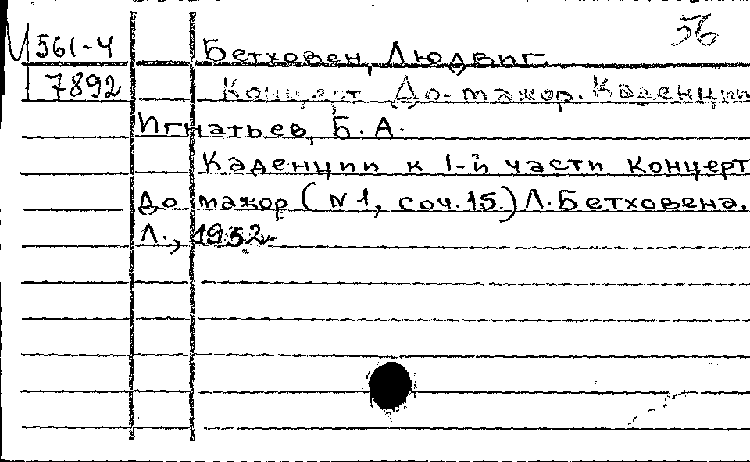 56
561-4 Бетховен, Людвиг
7892 Концерт До-мажор. Каденции
Игнатьев, Б. А.
Каденции к 1-й части концерт
До мажор (N1, соч. 15.) Л. Бетховена.
Л., 1952